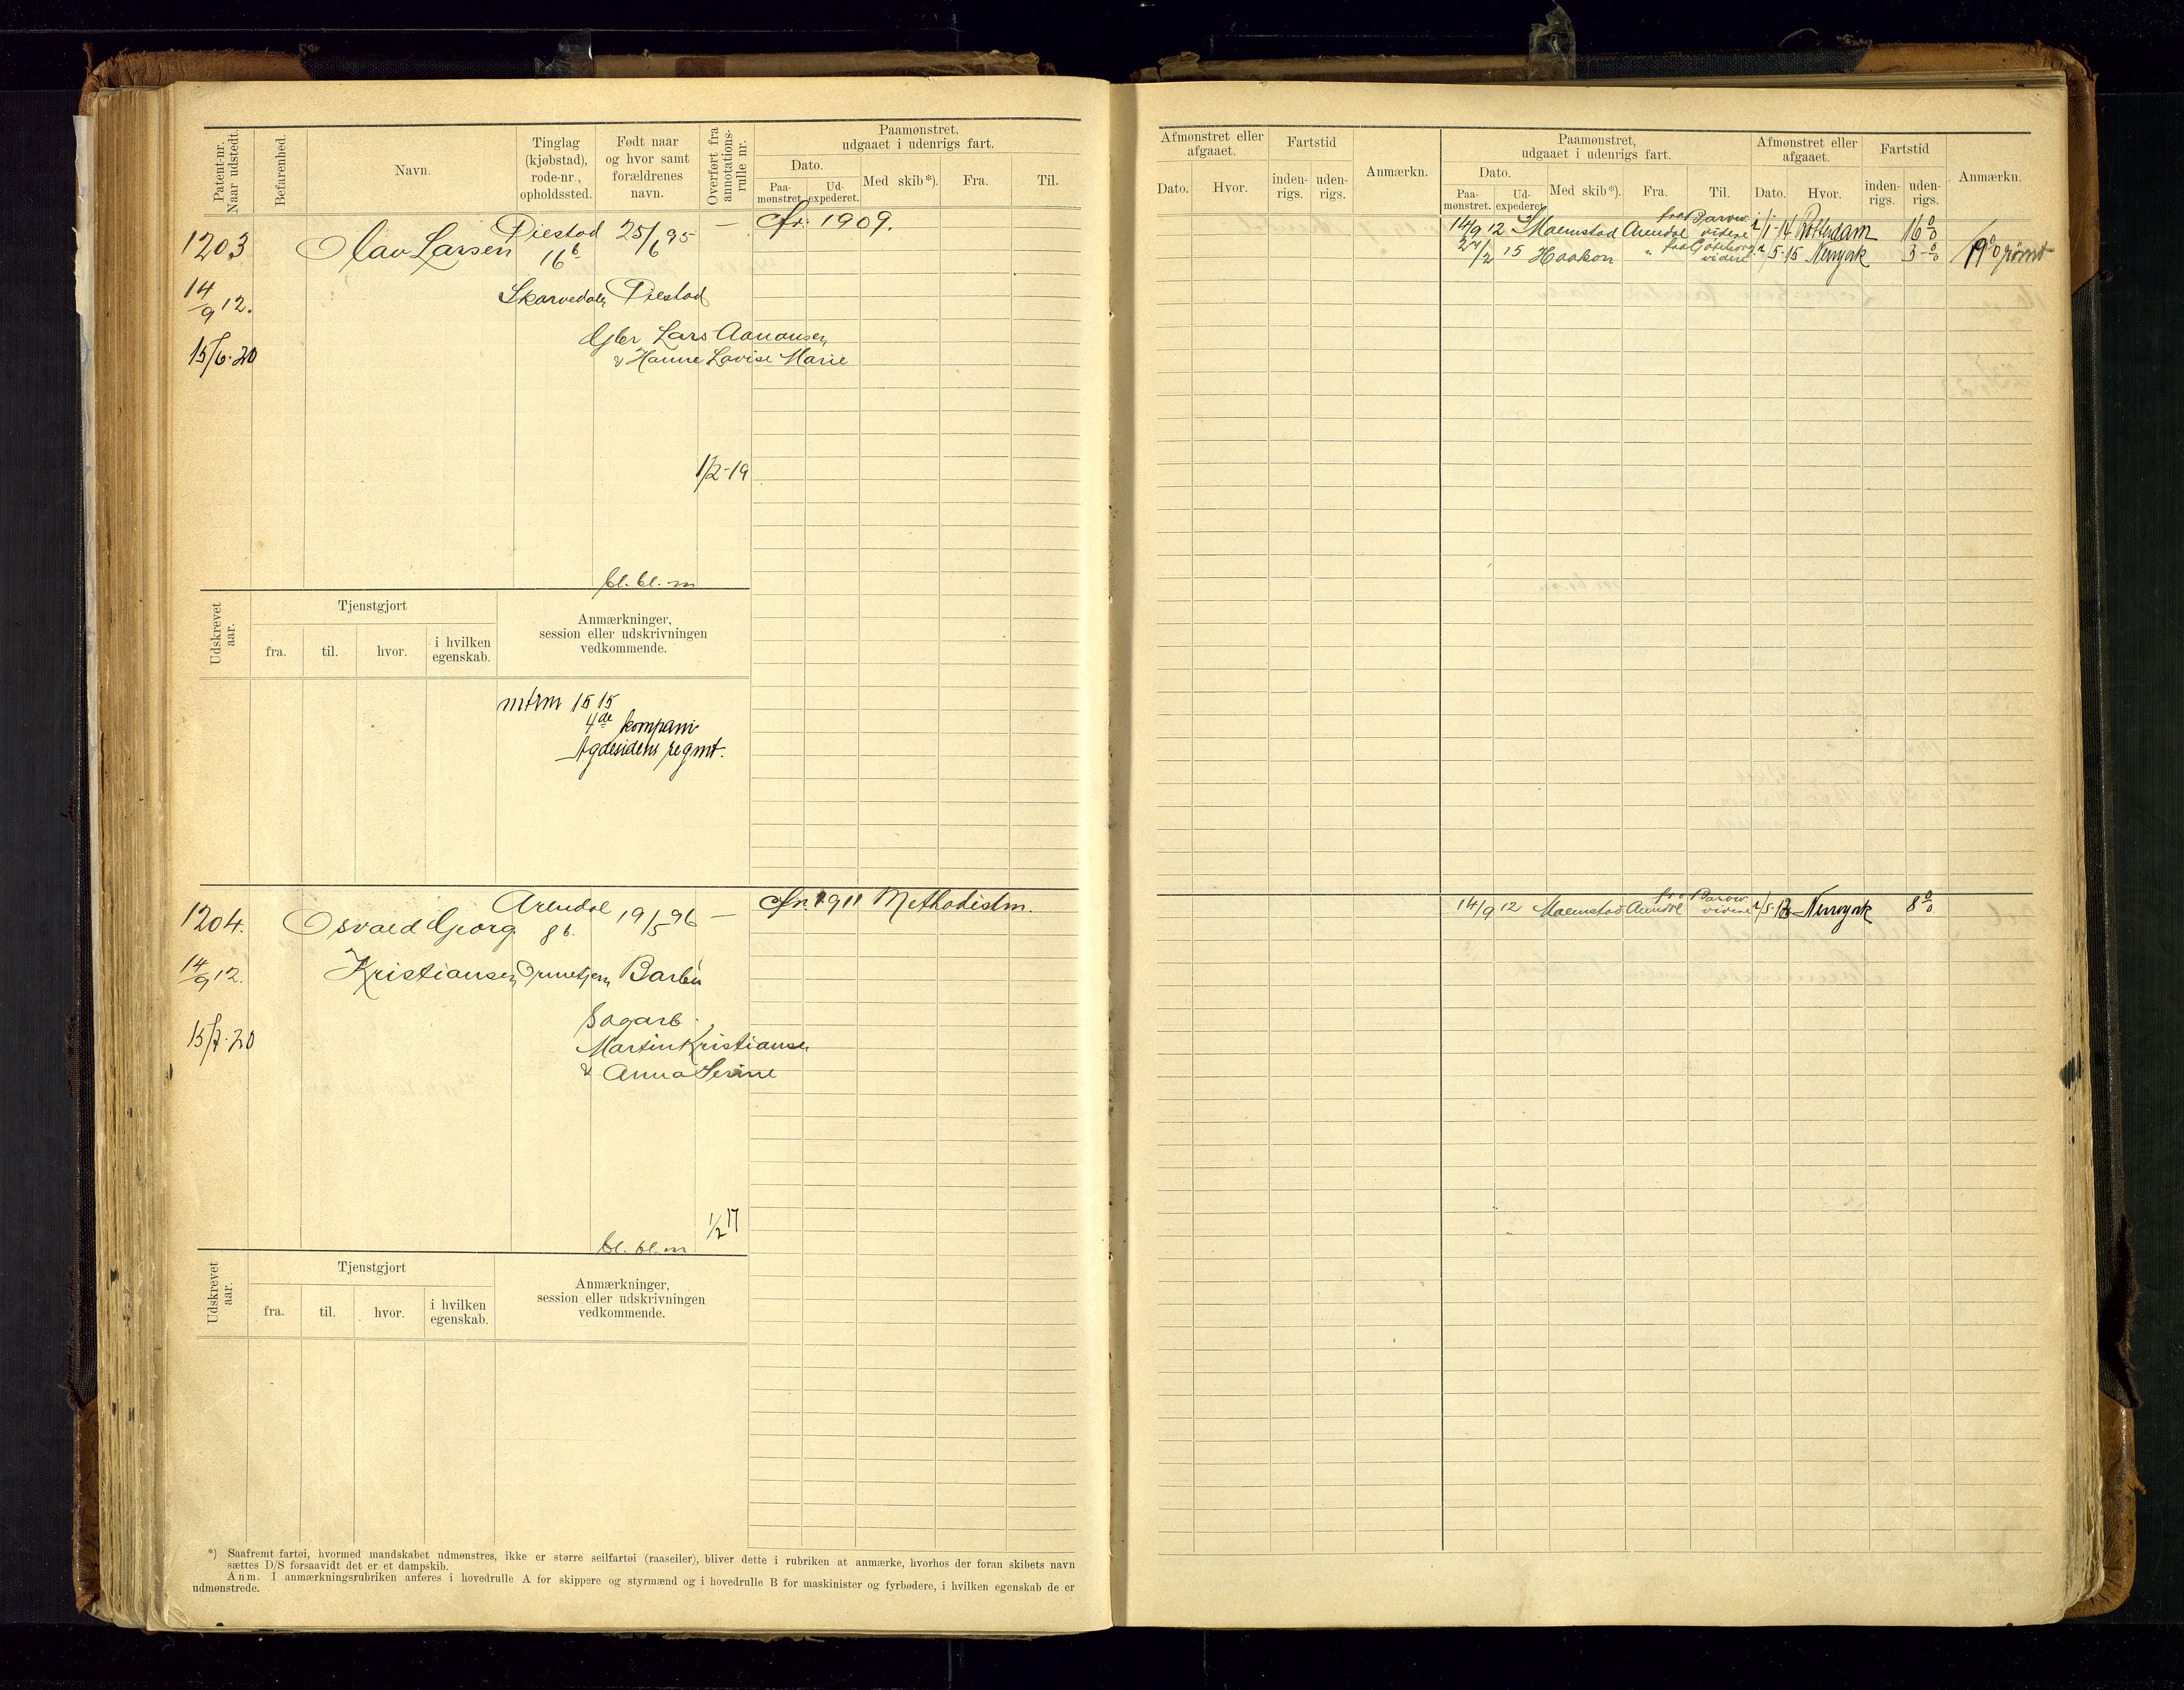 Patent-nr.
Naar udstedt.
Befarenhed.
Navn.
Tinglag
(kjøbstad),
rode-nr.,
opholdssted.
Født naar
og hvor samt
forældrenes
navn.
Overført fra
annotations-
rulle nr.
Paamønstret,
udgaaet i udenrigs fart.
Dato.
Paa-
mønstret.
Ud-
expederet.
Med skib*).
Fra.
Til.
1203
Olav Larsen
Øiestad
16b
25/6 95
—
Cfr: 1909.
14/9 12.
Skarvedalen
Øiestad
15/6.20
Gbr Lars Aanonsen
& Hanne Lovise Marie
1/2-19
bl. bl. m
Udskrevet
aar.
Tjenstgjort
fra.
til.
hvor.
i hvilken
egenskab.
Anmærkninger,
session eller udskrivningen
vedkommende.
mtrm 15 15
4de kompani
Agdesidens regmt.
1204.
Osvald Georg
Arendal
8b.
19/5 96
—
Cfr. 1911 Methodistm.
14/9 12.
Kristiansen
Barbu
15/7.20
Sagarb.
Martin Kristiansen
& Anna Serine
1/2 17
bl. bl. m
Udskrevet
aar.
Tjenstgjort
fra.
til.
hvor.
i hvilken
egenskab.
Anmærkninger,
session eller udskrivningen
vedkommende.
*) Saafremt fartøi, hvormed mandskabet udmønstres, ikke er større seilfartøi (raaseiler), bliver dette i rubriken at anmærke, hvorhos der foran skibets navn
sættes D/S forsaavidt det er et dampskib.
Anm. I anmærkningsrubriken anføres i hovedrulle A for skippere og styrmænd og i hovedrulle B for maskinister og fyrbødere, i hvilken egenskab de er
udmønstrede.
Afmønstret eller
afgaaet.
Dato.
Hvor.
Fartstid
inden-
rigs.
uden-
rigs.
Anmærkn.
Paamønstret,
udgaaet i udenrigs fart.
Dato.
Paa-
mønstret.
Ud-
expederet.
Med skib*).
Fra.
Til.
Afmønstret eller
afgaaet.
Dato.
Hvor.
Fartstid
inden-
rigs.
uden-
rigs.
Anmærkn.
14/9 12 Malmstad Arendal fra Barow videre 2/1-14 Rotterdam 16 0/0
27/2 15 Haakon " fra Gøteborg videre 2/5-15 Newyork 3 0/0 19 0/0 rømt
14/9 12 Malmstad Arendal fra Barow videre 2/5-13 Newyork 8 0/0